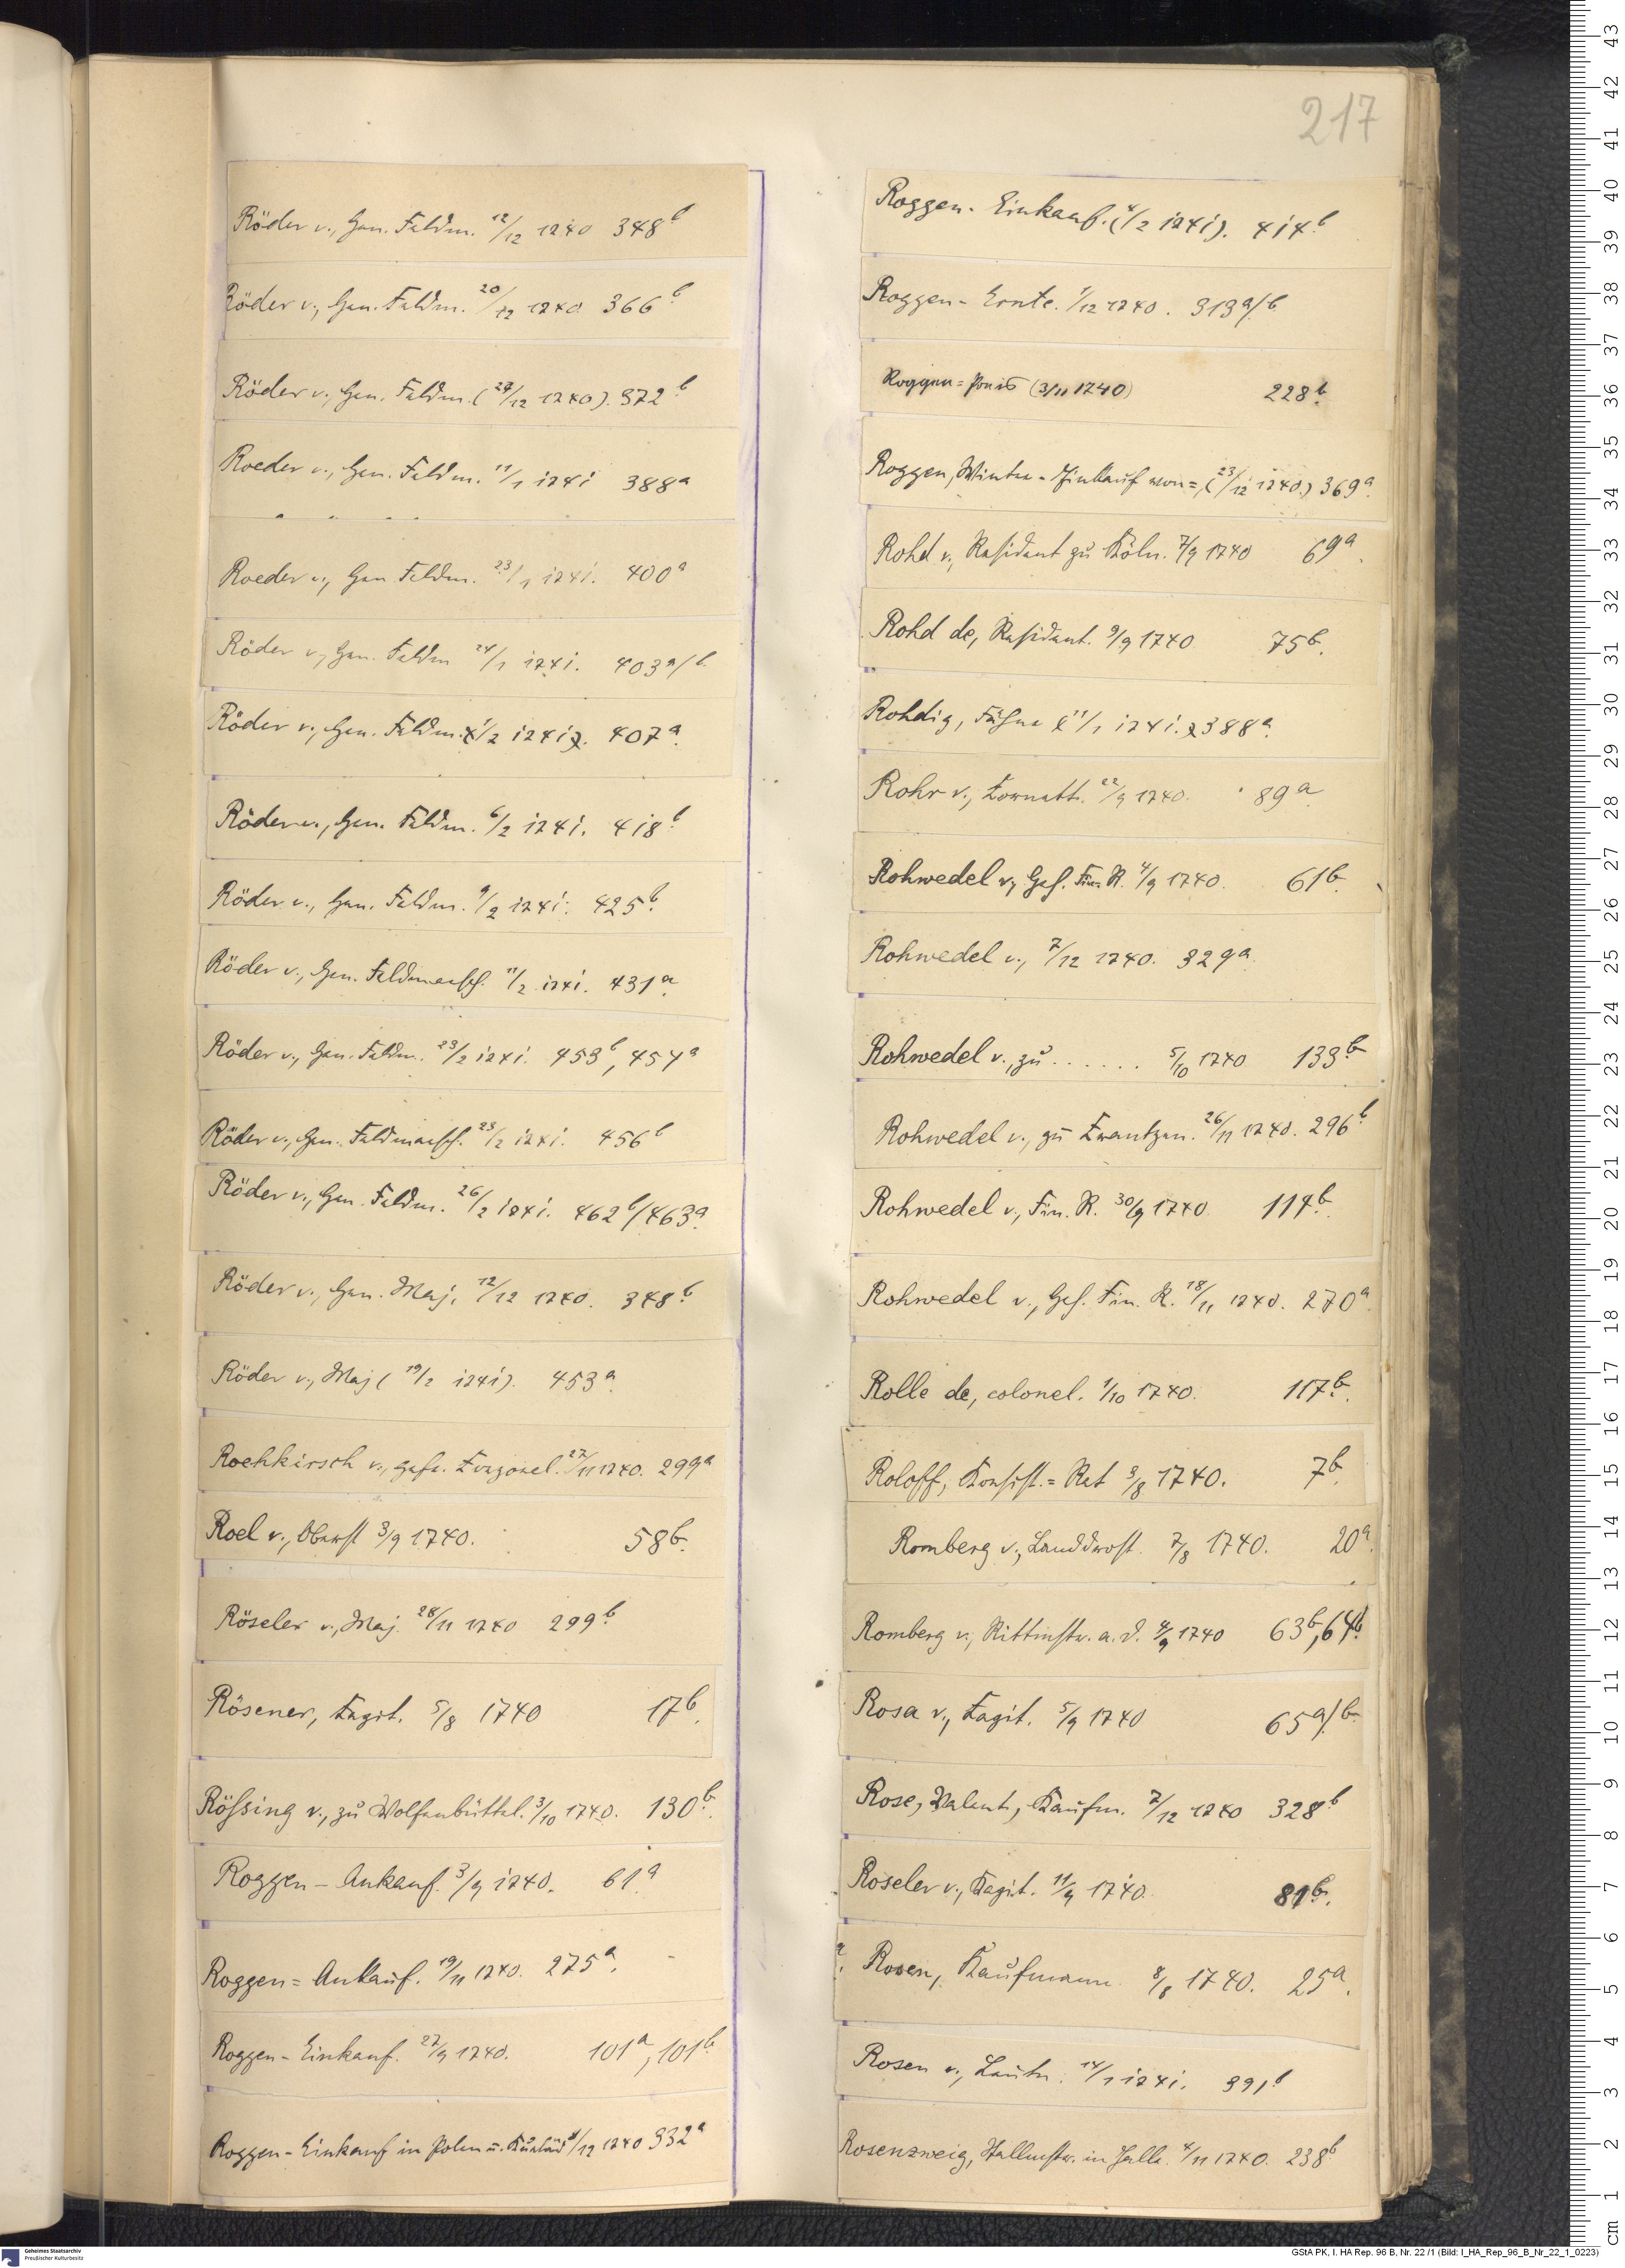 217
Röder v., Gen. Feldm. 12/12 1740 348b
Röder v., Gen. Feldm. 20/12 1740 366b
Röder v., Gen. Feldm. (27/12 1740). 372b
Roeder v., Gen. Feldm. 11/1 1741 388a
Roeder v., Gen. Feldm. 23/1 1741. 400a
Röder v., Gen. Feldm 24/1 1741. 403a/b
Röder v., Gen. Feldm. (1/2 1741). 407a.
Röder v., Gen. Feldm. 6/2 1741. 418b.
Röder v., Gen. Feldm. 9/2 1741. 425b.
Röder v., Gen. Feldmarsch. 11/2 1741. 431a.
Röder v., Gen. Feldm. 23/2 1741. 453b, 454a
Röder v., Gen. Feldmarsch. 23/2 1741. 456b
Röder v., Gen. Feldm. 26/2 1741. 462b/463a.
Röder v., Gen. Maj. 12/12 1740. 348b.
Röder v., Maj (19/2 1741). 453a.
Rochkirsch v., 27/11 1740. 299a
Roel v., Oberst 3/9 1740. 58b.
Röseler v., Maj. 28/11 1740 299b.
Rösener, Kapit. 5/8 1740 17b.
Rössing v., zu Wolfenbüttel. 3/10 1740. 130b.
Roggen - Ankauf. 3/9 1740. 61a.
Roggen = Ankauf. 19/11 1740. 275a.
Roggen - Einkauf. 27/9 1740. 101a, 101b.
Roggen - Einkauf in Polen u. 8/12 1740 332a
Roggen - Einkauf. (4/2 1741). 414b.
Roggen - Ernte. 1/12 1740. 313a/b.
Roggen = Preis (3/11 1740) 228b.
Roggen, Winter - Einkauf von =, (23/12 1740.) 369a.
Rohd v., Resident zu Köln. 7/9 1740 69a.
Rohd de, Resident. 9/9 1740 75b.
Rohdig, Fähnr (11/1 1741.) 388a.
Rohr v., 22/9 1740. 89a.
Rohwedel v., Geh. Fin. R. 4/9 1740. 61b.
Rohwedel v., 7/12 1740. 329a.
Rohwedel v., zu . . . . . . 5/10 1740 133b.
Rohwedel v., zu 26/11 1740. 296b.
Rohwedel v., Fin. R. 30/9 1740. 114b.
Rohwedel v., Geh. Fin. R. 18/11 1740. 270a.
Rolle de, colonel. 1/10 1740. 117b.
Roloff, Konsist. = Rat 3/8 1740. 7b.
Romberg v., Landdrost. 7/8 1740. 20a.
Romberg v., Rittmstr. a. D. 4/9 1740 63b, 64b.
Rosa v., Kapit. 5/9 1740 65a/b.
Rose, Valent., Kaufm. 7/12 1740 328b
Roseler v., Kapit. 11/9 1740. 81b.
Rosen, Kaufmann. 8/8 1740. 25a.
Rosen v., Leutn. 14/1 1741. 391b.
Rosenzweig, Hallmstr. in Halle. 4/11 1740. 238b
43
42
41
40
39
38
37
36
35
34
33
32
31
30
29
28
27
26
25
24
23
22
21
20
19
18
17
16
15
14
13
12
11
10
9
8
7
6
5
4
3
2
1
cm
Geheimes Staatsarchiv
Preußischer Kulturbesitz
GStA PK, I. HA Rep. 96 B, Nr. 22 /1 (Bild: I_HA_Rep_96_B_Nr_22_1_0223)